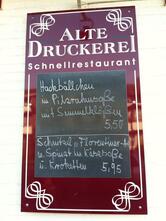 ALTE
DRUCKEREI
Schnellrestaurant
Hackbällchen
in Pilzrahmsoße
mit Semmelklößen
5,50
Schnitzel "Florentiner Art"
u Spinat in Käsesoße
u. Kroketten 5,95